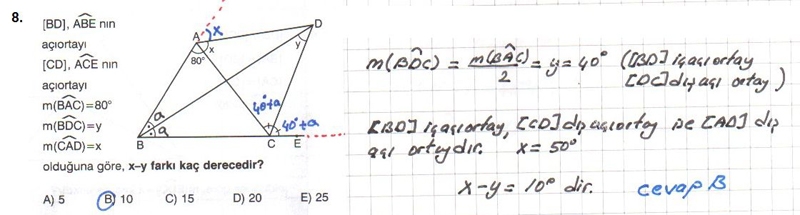 8.
[BD], ABE nın
açıortayı
[CD], ACE nın
açıortayı
m(BAC)=80°
m(BDC)=y
m(CAD)=x
olduğuna göre, x–y farkı kaç derecedir?
A) 5 B) 10 C) 15 D) 20 E) 25
A x D
x y
80°
a
a
40°+a
40°+a
B C E
m(BDC) = m(BAC)/2 = y = 40° ([BD] iç açı ortay
[DC] dış açı ortay)
[BD] iç açıortay, [CD] dış açıortay ise [AD] dış
açı ortaydır. x = 50°
x-y = 10° dir. cevap B